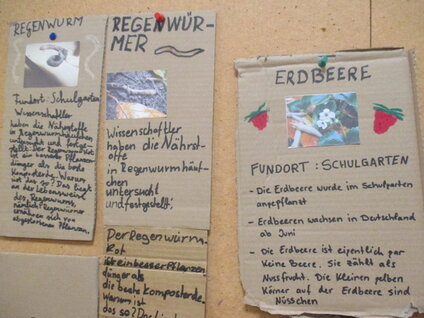 REGENWURM
Fundort: Schulgarten
Wissenschaftler
haben die Nährstoffe
in Regenwurmhäufchen
untersucht und festge-
stellt: Der Regenwurmkot
ist ein besserer Pflanzen-
dünger als die beste
Komposterde. Warum
ist das so? Das liegt
an der Lebensweise
des Regenwurms
nämlich: Regenwürmer
ernähren sich von
abgestorbenen Pflanzen.
REGENWÜR-
MER
Wissenschaftler
haben die Nährst-
offe
in Regenwurmhäuf-
chen
untersucht
und festgestellt:
Der Regenwurm-
Kot
ist ein besser Pflanzen
dünger als
die beste Komposterde.
Warum ist
das so? Das
ERDBEERE
FUNDORT: SCHULGARTEN
- Die Erdbeere wurde im Schulgarten
angepflanzt
- Erdbeeren wachsen in Deutschland
ab Juni
- Die Erdbeere ist eigentlich gar
keine Beere. Sie zählt als
Nussfrucht. Die kleinen gelben
Körner auf der Erdbeere sind
Nüsschen